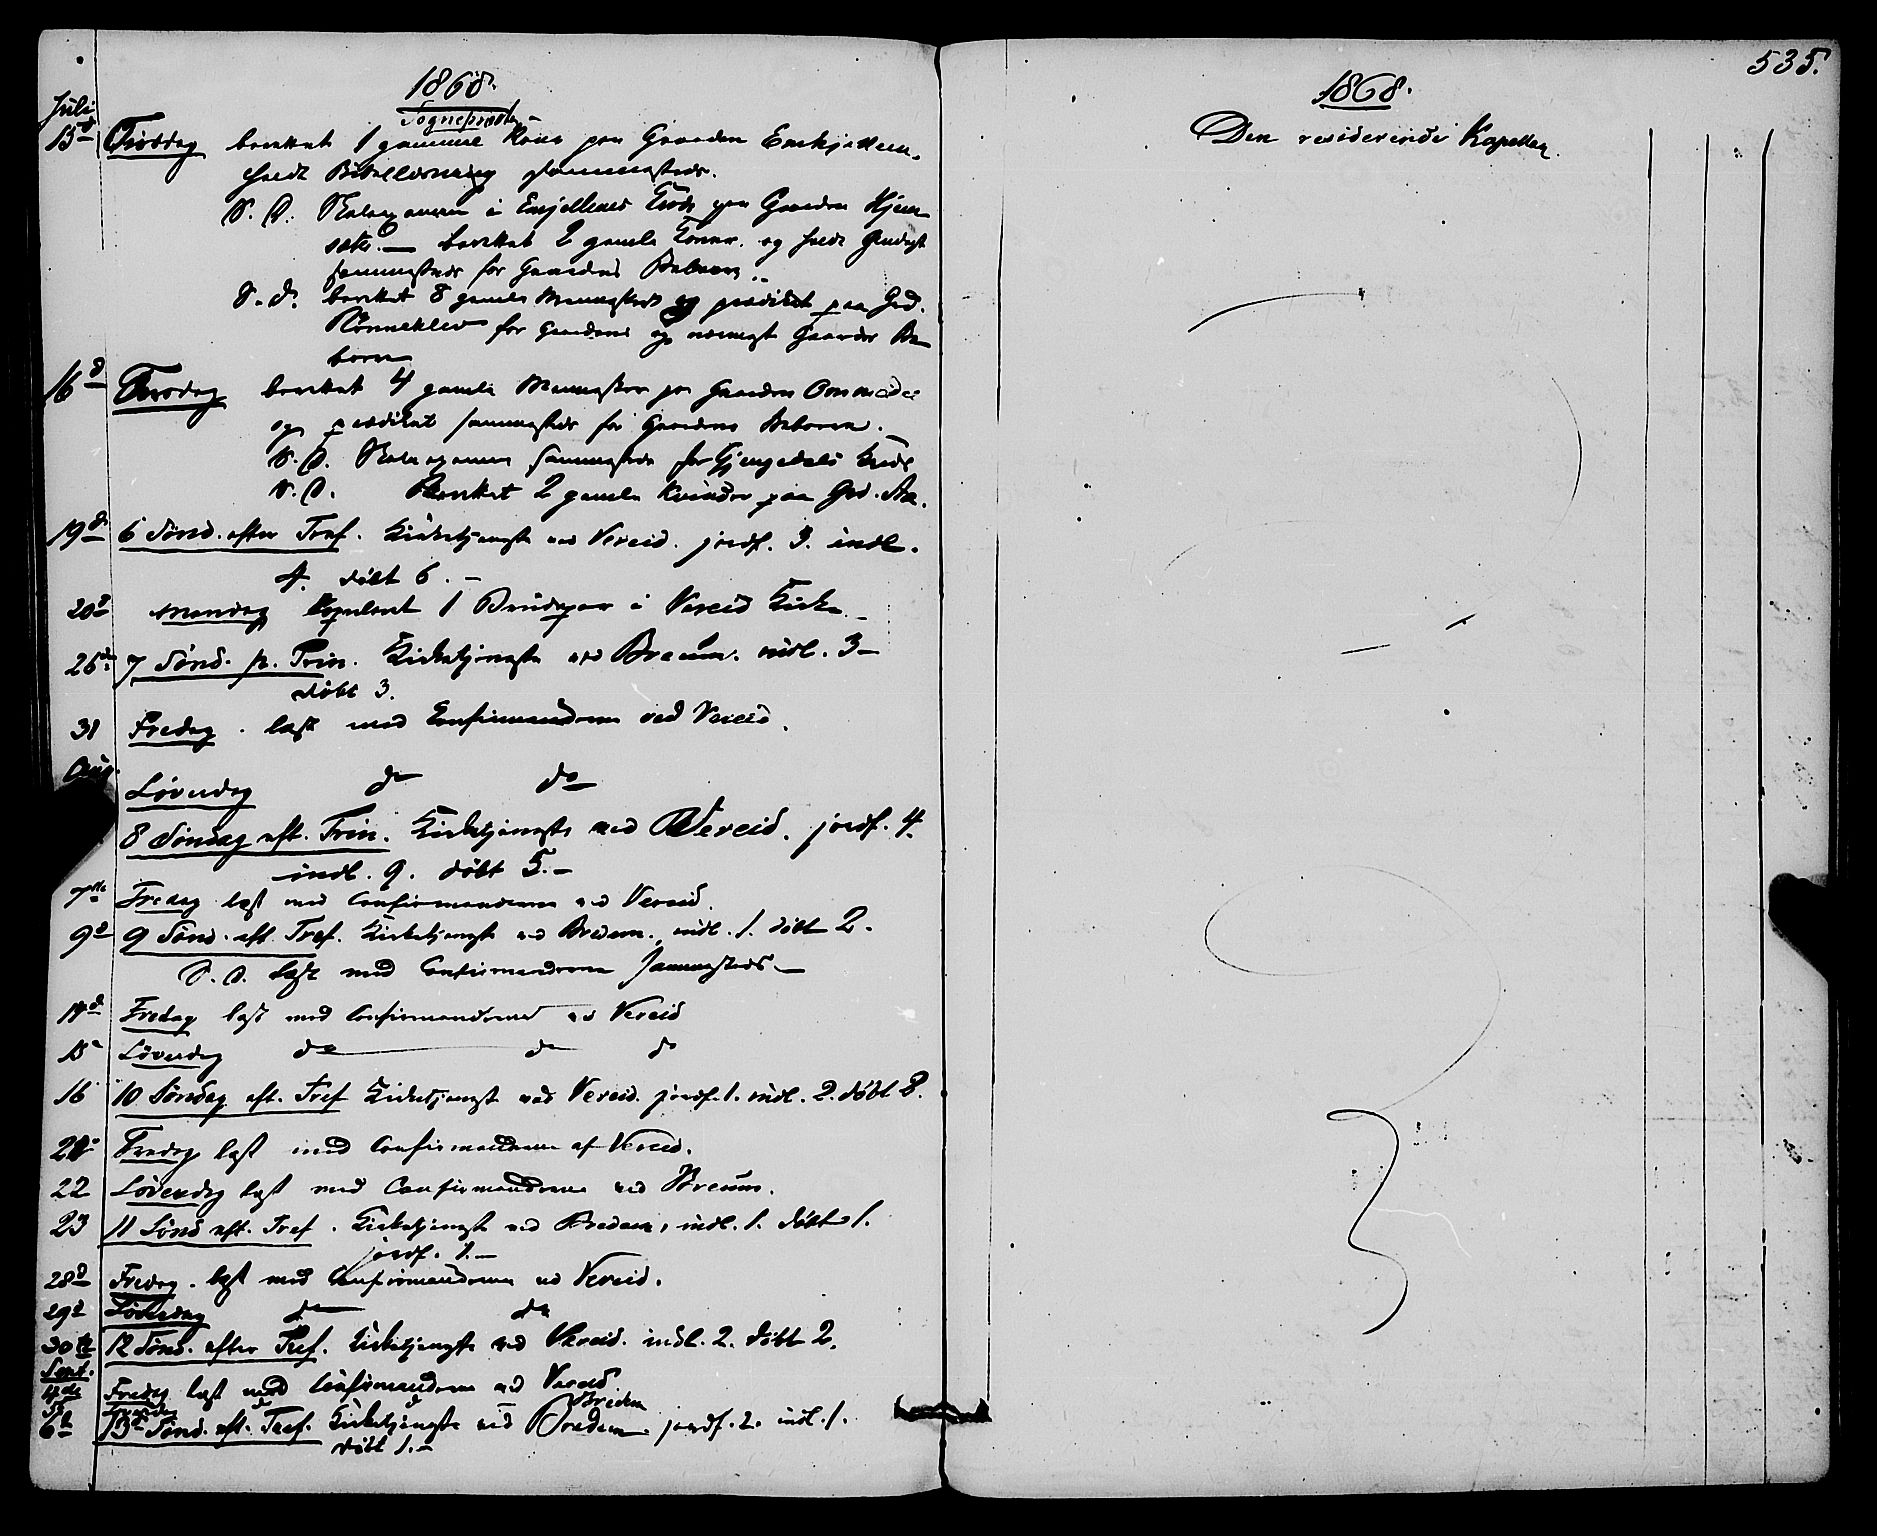 1868.
Sognepræsten
Juli
15d Tirsdag berettet 1 gammel Kone paa Gaarden
holdt Bibellæsning sammesteds.
S. D. Skoleexamen i Kreds paa Gaarden Hjem
sæter. — berettet 2 gamle Koner og holdt
sammesteds for Gaardens Beboere.
S. d. berettet 8 gamle Mennesker og prædiket paa Grd.
for Gaardens og nærmeste Gaardes Be
boere
16d Torsdag berettet 4 gamle Mennesker paa Gaarden Ommedal
og prædiket sammesteds for Gaardens Beboere.
S. D. Skoleexamen sammesteds for Gjengedals Kreds
S. D. Berettet 2 gamle Kvinder paa Grd. Aa.
19d 6 Sønd. efter Tref. Kirketjeneste ved Vereid. jordf. 3. indl.
4. døbt 6. —
20d Mandag Copuleret 1 Brudepar i Vereid Kirke. —
26de 7 Sønd. p. Trin. Kirketjeneste ved Breum. indl. 3 —
døbt 3.
31 Fredag. læst med Confirmanderne ved Vereid.
Aug.
Løverdag do do
8 Søndag eft. Trin. Kirketjeneste ved Vereid. jordf. 4.
indl. 9. døbt 5. —
7de Fredag læst med Confirmanderne ved Vereid.
9d 9 Sønd. eft. Tref. Kirketjeneste ved Bredem. indl. 1. døbt 2.
S. D. læst med Confirmanderne sammesteds —
14d Fredag læst med Confirmanderne ved Vereid
15 Løverdag do do do
16 10 Søndag eft. Tref Kirketjeneste ved Vereid. jordf. 1. indl. 2. døbt 8.
21 Fredag læst med Confirmanderne af Vereid.
22 Løverdag læst med Confirmanderne ved Breum.
23 11 Sønd eft. Tref. Kirketjeneste ved Bredem, indl. 1. døbt 1.
jordf. 1. —
28d Fredag. læst med Confirmanderne ved Vereid.
29d Løverdag do do
30te 12 Sønd. efter Tref. Kirketjeneste ved Vereid. indl. 2. døbt 2.
Sept.
4de Fredag læst med Confirmanderne ved Vereid
5 Løverdag d d Bredem
6d 13de Sønd. eft. Tref. Kirketjeneste ved Bredem jordf. 2. indl. 1.
døbt 1. —
535.
1868.
Den residerende Kapellan.